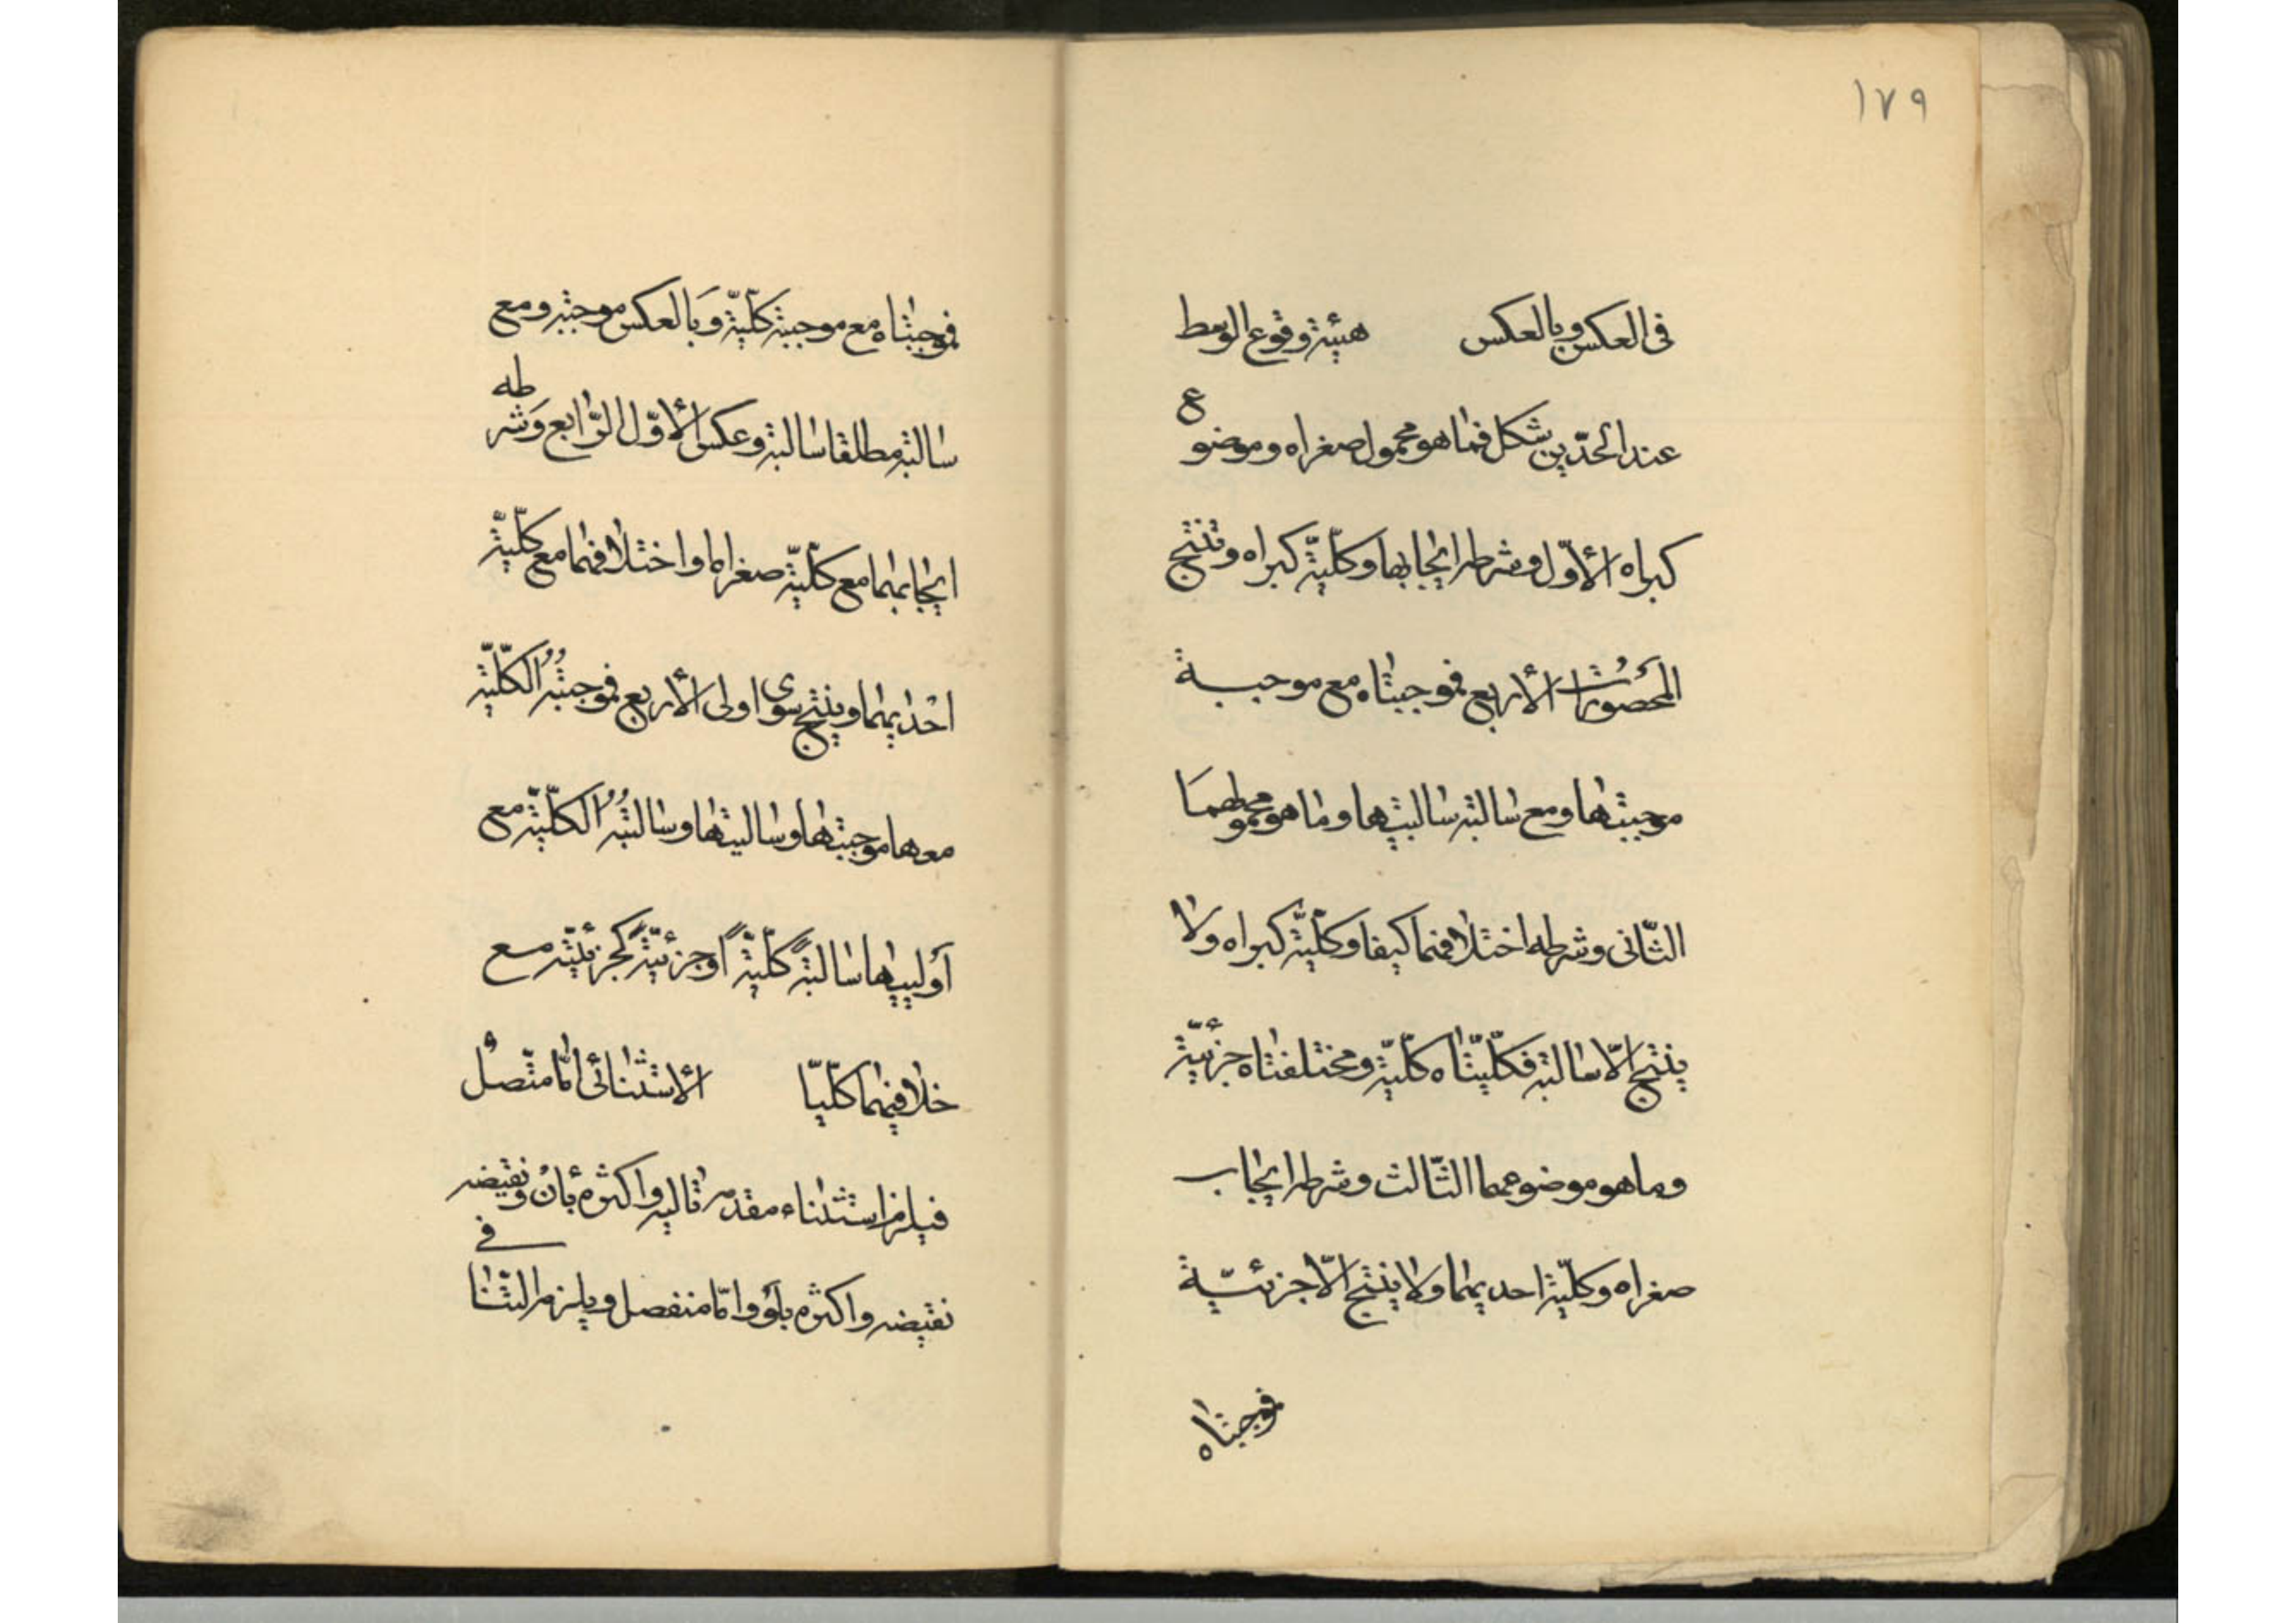 ١٧٩
فى العكس وبالعكس هيئة وقوع الوسط
عند الحدّين شكل فما هو محمول صغراه وموضوع
كبراه الأوّل وشرطه ايجابها وكلّيّة كبراه وتنتج
المحصورات الأربع فموجبتاه مع موجبة
موجبتها ومع سالبة سالبيتها وما هو محمولهما
الثّانى وشرطه اختلافهما كيفا وكلّيّة كبراه ولا
ينتج الّا سالبة فكلّيّتاه كلّيّة ومختلفتاه جزئيّة
وما هو موضوعهما الثّالث وشرطه ايجاب
صغراه وكلّيّة احديهما ولا ينتج الّا جزئيّة
فموجبتاه
فموجبتاه مع موجبة كلّيّة وبالعكس موجبة ومع
سالبة مطلقا سالبة وعكس الأوّل الرّابع وشرطه
ايجابهما مع كلّيّة صغراها واختلافهما مع كلّيّة
احديهما وينتج سوى اولى الأربع فموجبتُه الكلّيّة
معها موجبتها وسالبتها وسالبتُه الكلّيّة مع
أوليها سالبةً كلّيّةً أو جزئيّةً كجزئيّة مع
خلافهما كلّيّا الأستثنائى امّا متّصل
فيلزم استثناء مقدّمه تاليه واكثره بأن ونقيضه
نقيضه واكثره بلو وامّا منفصل ويلزم التّنافى